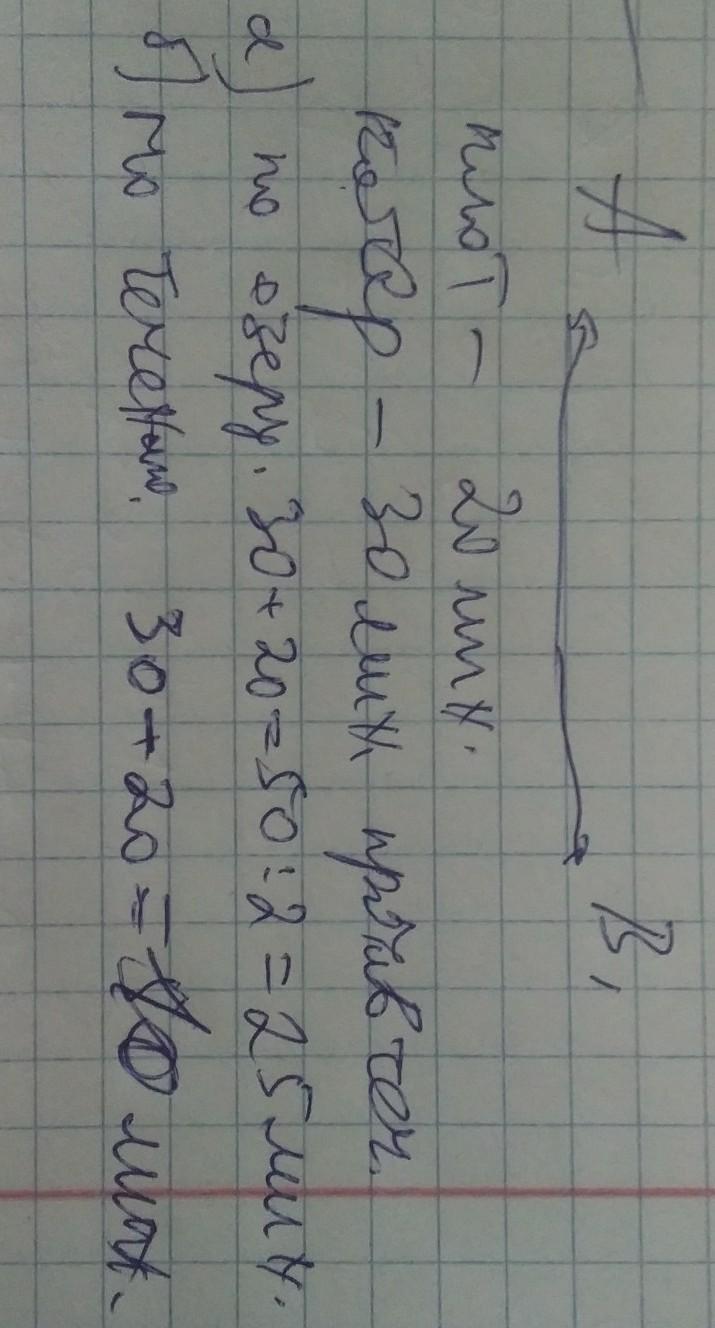 А В,
плот - 20 мин.
катер - 30 мин против теч.
а) по озеру. 30+20=50:2=25 мин.
б) по течению. 30+20= мин.